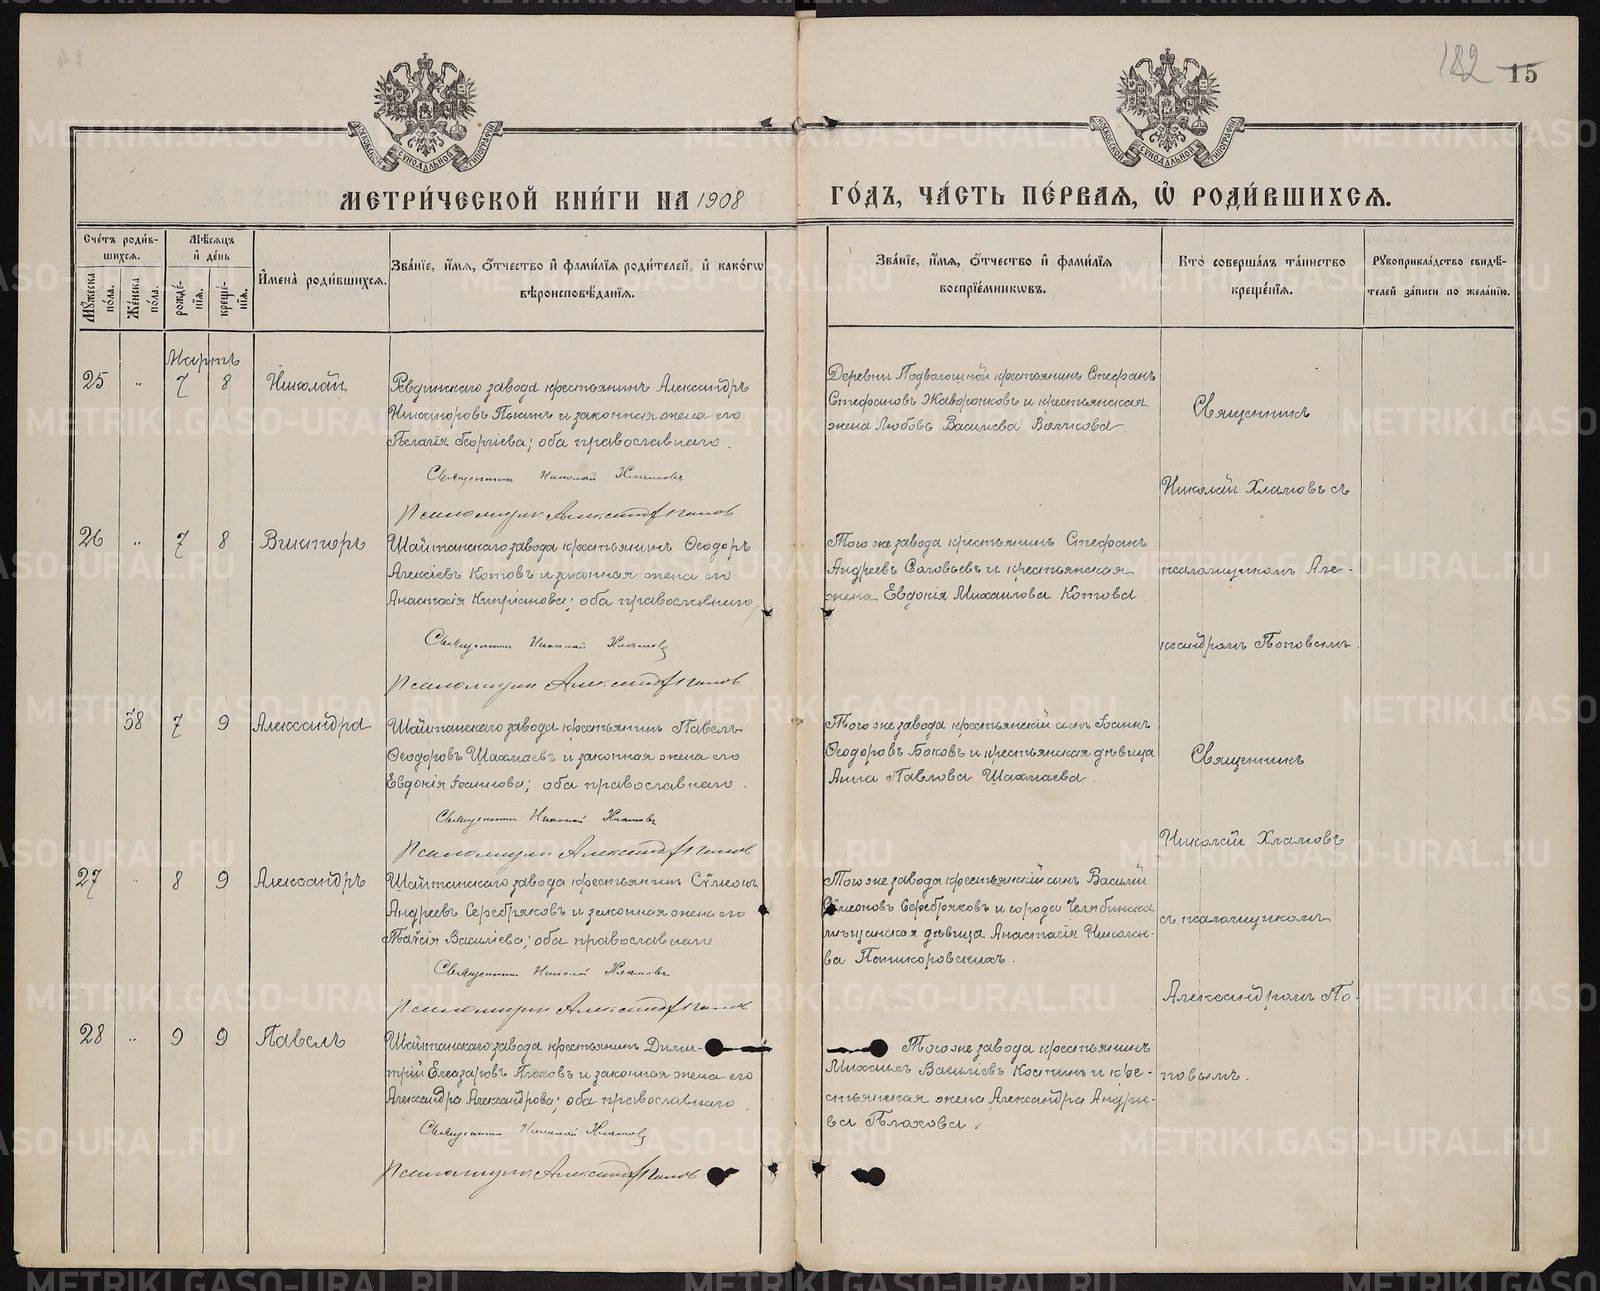 182 15
МОСКОВСКОЙ СѴНОДАЛЬНОЙ ТИПОГРАФІИ
МОСКОВСКОЙ СѴНОДАЛЬНОЙ ТИПОГРАФІИ
МЕТРИ́ЧЕСКОЙ КНИ́ГИ НА 1908 ГО́ДЪ, ЧА́СТЬ ПЕ́РВАЯ, Ѽ РОДИ́ВШИХСЯ.
Сче́тъ роди́в-
шихся.
Мѣ́сяцъ
и҆ де́нь
Мꙋ́жеска
по́ла.
Же́нска
по́ла.
рожде́-
нїя.
креще́-
нїя.
И҆мена̀ роди́вшихся.
Зва́нїе, и҆́мя, ѻ҆́тчество и҆ фамѝлїя роди́телей, и҆ како́гѡ
вѣроисповѣ́данїя.
Зва́нїе, и҆́мя, ѻ҆́тчество и҆ фамѝлїя
воспрїе́мникѡвъ.
Кто̀ соверша́лъ та́инство
креще́нїя.
Рꙋкоприкла́дство свидѣ́-
телей за́писи по жела́нїю.
Мартъ
25 " 7 8 Николай
Ревдинскаго завода крестьянинъ Александръ
Никаноровъ Покинъ и законная жена его
Пелагія Георгіева; оба православнаго.
Священник Николай Хламовъ
Псаломщик Александр Попов
Деревни Подволошной крестьянинъ Стефанъ
Стефановъ Жаворонковъ и крестьянская
жена Любовь Васильева Волкова
Священникъ
Николай Хламовъ съ
26 " 7 8 Викторъ
Шайтанскаго завода крестьянинъ Ѳеодоръ
Алексіевъ Котовъ и законная жена его
Анастасія Кипріанова; оба православнаго,
Священник Николай Хламов
Псаломщик Александр Попов
Того же завода крестьянинъ Стефанъ
Андреевъ Соловьевъ и крестьянская
жена Евдокія Михаилова Котова
псаломщикомъ Але-
ксандромъ Поповымъ.
58 7 9 Александра
Шайтанскаго завода крестьянинъ Павелъ
Ѳеодоровъ Шахмаевъ и законная жена его
Евдокія Іоаннова; оба православнаго.
Священник Николай Хламов
Псаломщик Александр Попов
Того же завода крестьянскій сынъ Іоаннъ
Ѳеодоровъ Боковъ и крестьянская дѣвица
Анна Павлова Шахмаева.
Священникъ
Николай Хламовъ
27 " 8 9 Александръ
Шайтанскаго завода крестьянинъ Сѵмеонъ
Андреевъ Серебряковъ и законная жена его
Таисія Васильева; оба православнаго
Священник Николай Хламовъ
Псаломщик Александр Попов
Того же завода крестьянскій сынъ Василій
Сѵмеоновъ Серебряковъ и города Челябинска
мѣщанская дѣвица Анастасія Николае-
ва
съ псаломщикомъ
Александромъ По-
28 " 9 9 Павелъ
Шайтанскаго завода крестьянинъ Дими-
трій Елеазаровъ Плоховъ и законная жена его
Александра Александрова; оба православнаго
Священник Николай Хламов
Псаломщик Александр Попов
Того же завода крестьянинъ
Михаилъ Васильевъ Костинъ и кре-
стьянская жена Александра Андре-
ва Плохова.
повымъ.
METRIKI.GASO-URAL.RU